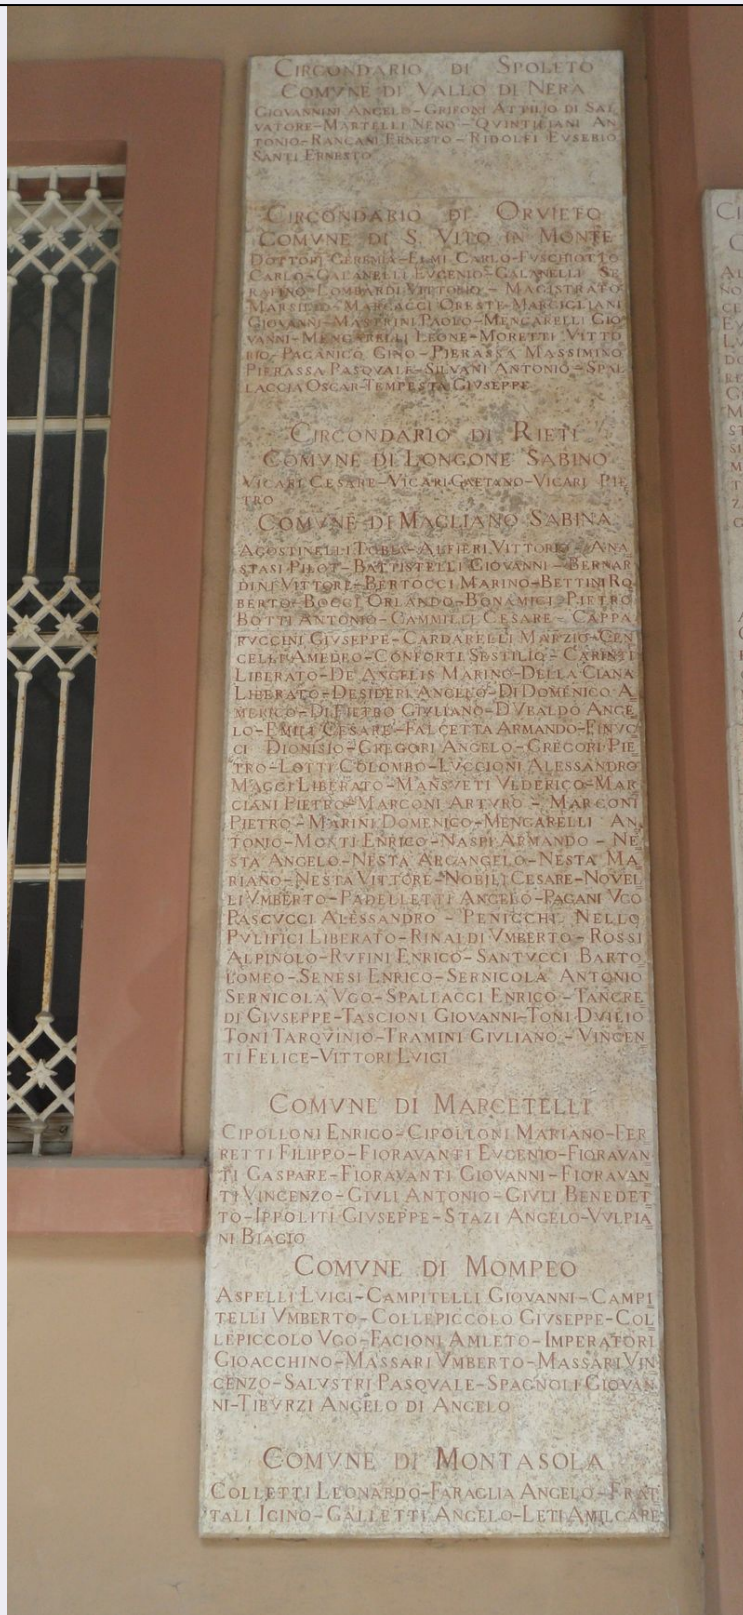 CIRCONDARIO DI SPOLETO
COMVNE DI VALLO DI NERA
GIOVANNINI ANGELO-GRIFONI ATTILIO DI SAL
VATORE-MARTELLI NENO-QVINTILIANI AN
TONIO-RANCANI ERNESTO-RIDOLFI EVSEBIO
SANTI ERNESTO
CIRCONDARIO DI ORVIETO
COMVNE DI S. VITO IN MONTE
DOTTORI GEREMIA-ELMI CARLO-FVSCHIOTTO
CARLO-GALANELLI EVGENIO-GALANELLI SE
RAFINO-LOMBARDI VITTORIO-MAGISTRATO
MARSILIO-MARCACCI ORESTE-MARCIGLIANI
GIOVANNI-MASTRINI PAOLO-MENCARELLI GIO
VANNI-MENCARELLI LEONE-MORETTI VITTO
RIO-PAGANICO GINO-PIERASSA MASSIMINO
PIERASSA PASQVALE-SILVANI ANTONIO-SPAL
LACCIA OSCAR-TEMPESTA GIVSEPPE
CIRCONDARIO DI RIETI
COMVNE DI LONGONE SABINO
VICARI CESARE-VICARI GAETANO-VICARI PIE
TRO
COMVNE DI MAGLIANO SABINA
AGOSTINELLI TOBIA-ALFIERI VITTORIO-ANA
STASI PILOT-BATTISTELLI GIOVANNI-BERNAR
DINI VITTORE-BERTOCCI MARINO-BETTINI RO
BERTO-BOCCI ORLANDO-BONAMICI PIETRO
BOTTI ANTONIO-CAMMILLI CESARE-CAPPA
RVCCINI GIVSEPPE-CARDARELLI MARZIO-CEN
CELLI AMEDEO-CONFORTI SESTILIO-CARINTI
LIBERATO-DE ANGELIS MARINO-DELLA CIANA
LIBERATO-DESIDERI ANGELO-DI DOMENICO A
MERICO-DI PIETRO GIVLIANO-D'VBALDO ANGE
LO-EMILI CESARE-FALCETTA ARMANDO-FINVC
CI DIONISIO-GREGORI ANGELO-GREGORI PIE
TRO-LOTTI COLOMBO-LVCCIONI ALESSANDRO
MAGGI LIBERATO-MANSVETI VLDERICO-MAR
CIANI PIETRO-MARCONI ARTVRO-MARCONI
PIETRO-MARINI DOMENICO-MENGARELLI AN
TONIO-MONTI ENRICO-NASPI ARMANDO-NE
STA ANGELO-NESTA ARCANGELO-NESTA MA
RIANO-NESTA VITTORE-NOBILI CESARE-NOVEL
LI VMBERTO-PADELLETTI ANGELO-PAGANI VGO
PASCVCCI ALESSANDRO-PENICCHI NELLO
PVLIFICI LIBERATO-RINALDI VMBERTO-ROSSI
ALPINOLO-RVFINI ENRICO-SANTVCCI BARTO
LOMEO-SENESI ENRICO-SERNICOLA ANTONIO
SERNICOLA VGO-SPALLACCI ENRICO-TANCRE
DI GIVSEPPE-TASCIONI GIOVANNI-TONI DVILIO
TONI TARQVINIO-TRAMINI GIVLIANO-VINCEN
TI FELICE-VITTORI LVIGI
COMVNE DI MARCETELLI
CIPOLLONI ENRICO-CIPOLLONI MARIANO-FER
RETTI FILIPPO-FIORAVANTI EVGENIO-FIORAVAN
TI GASPARE-FIORAVANTI GIOVANNI-FIORAVAN
TI VINCENZO-GIVLI ANTONIO-GIVLI BENEDET
TO-IPPOLITI GIVSEPPE-STAZI ANGELO-VVLPIA
NI BIAGIO
COMVNE DI MOMPEO
ASPELLI LVIGI-CAMPITELLI GIOVANNI-CAMPI
TELLI VMBERTO-COLLEPICCOLO GIVSEPPE-COL
LEPICCOLO VGO-FACIONI AMLETO-IMPERATORI
GIOACCHINO-MASSARI VMBERTO-MASSARI VIN
CENZO-SALVSTRI PASQVALE-SPAGNOLI GIOVAN
NI-TIBVRZI ANGELO DI ANGELO
COMVNE DI MONTASOLA
COLLETTI LEONARDO-FARAGLIA ANGELO-FRAT
TALI IGINO-GALLETTI ANGELO-LETI AMILCARE